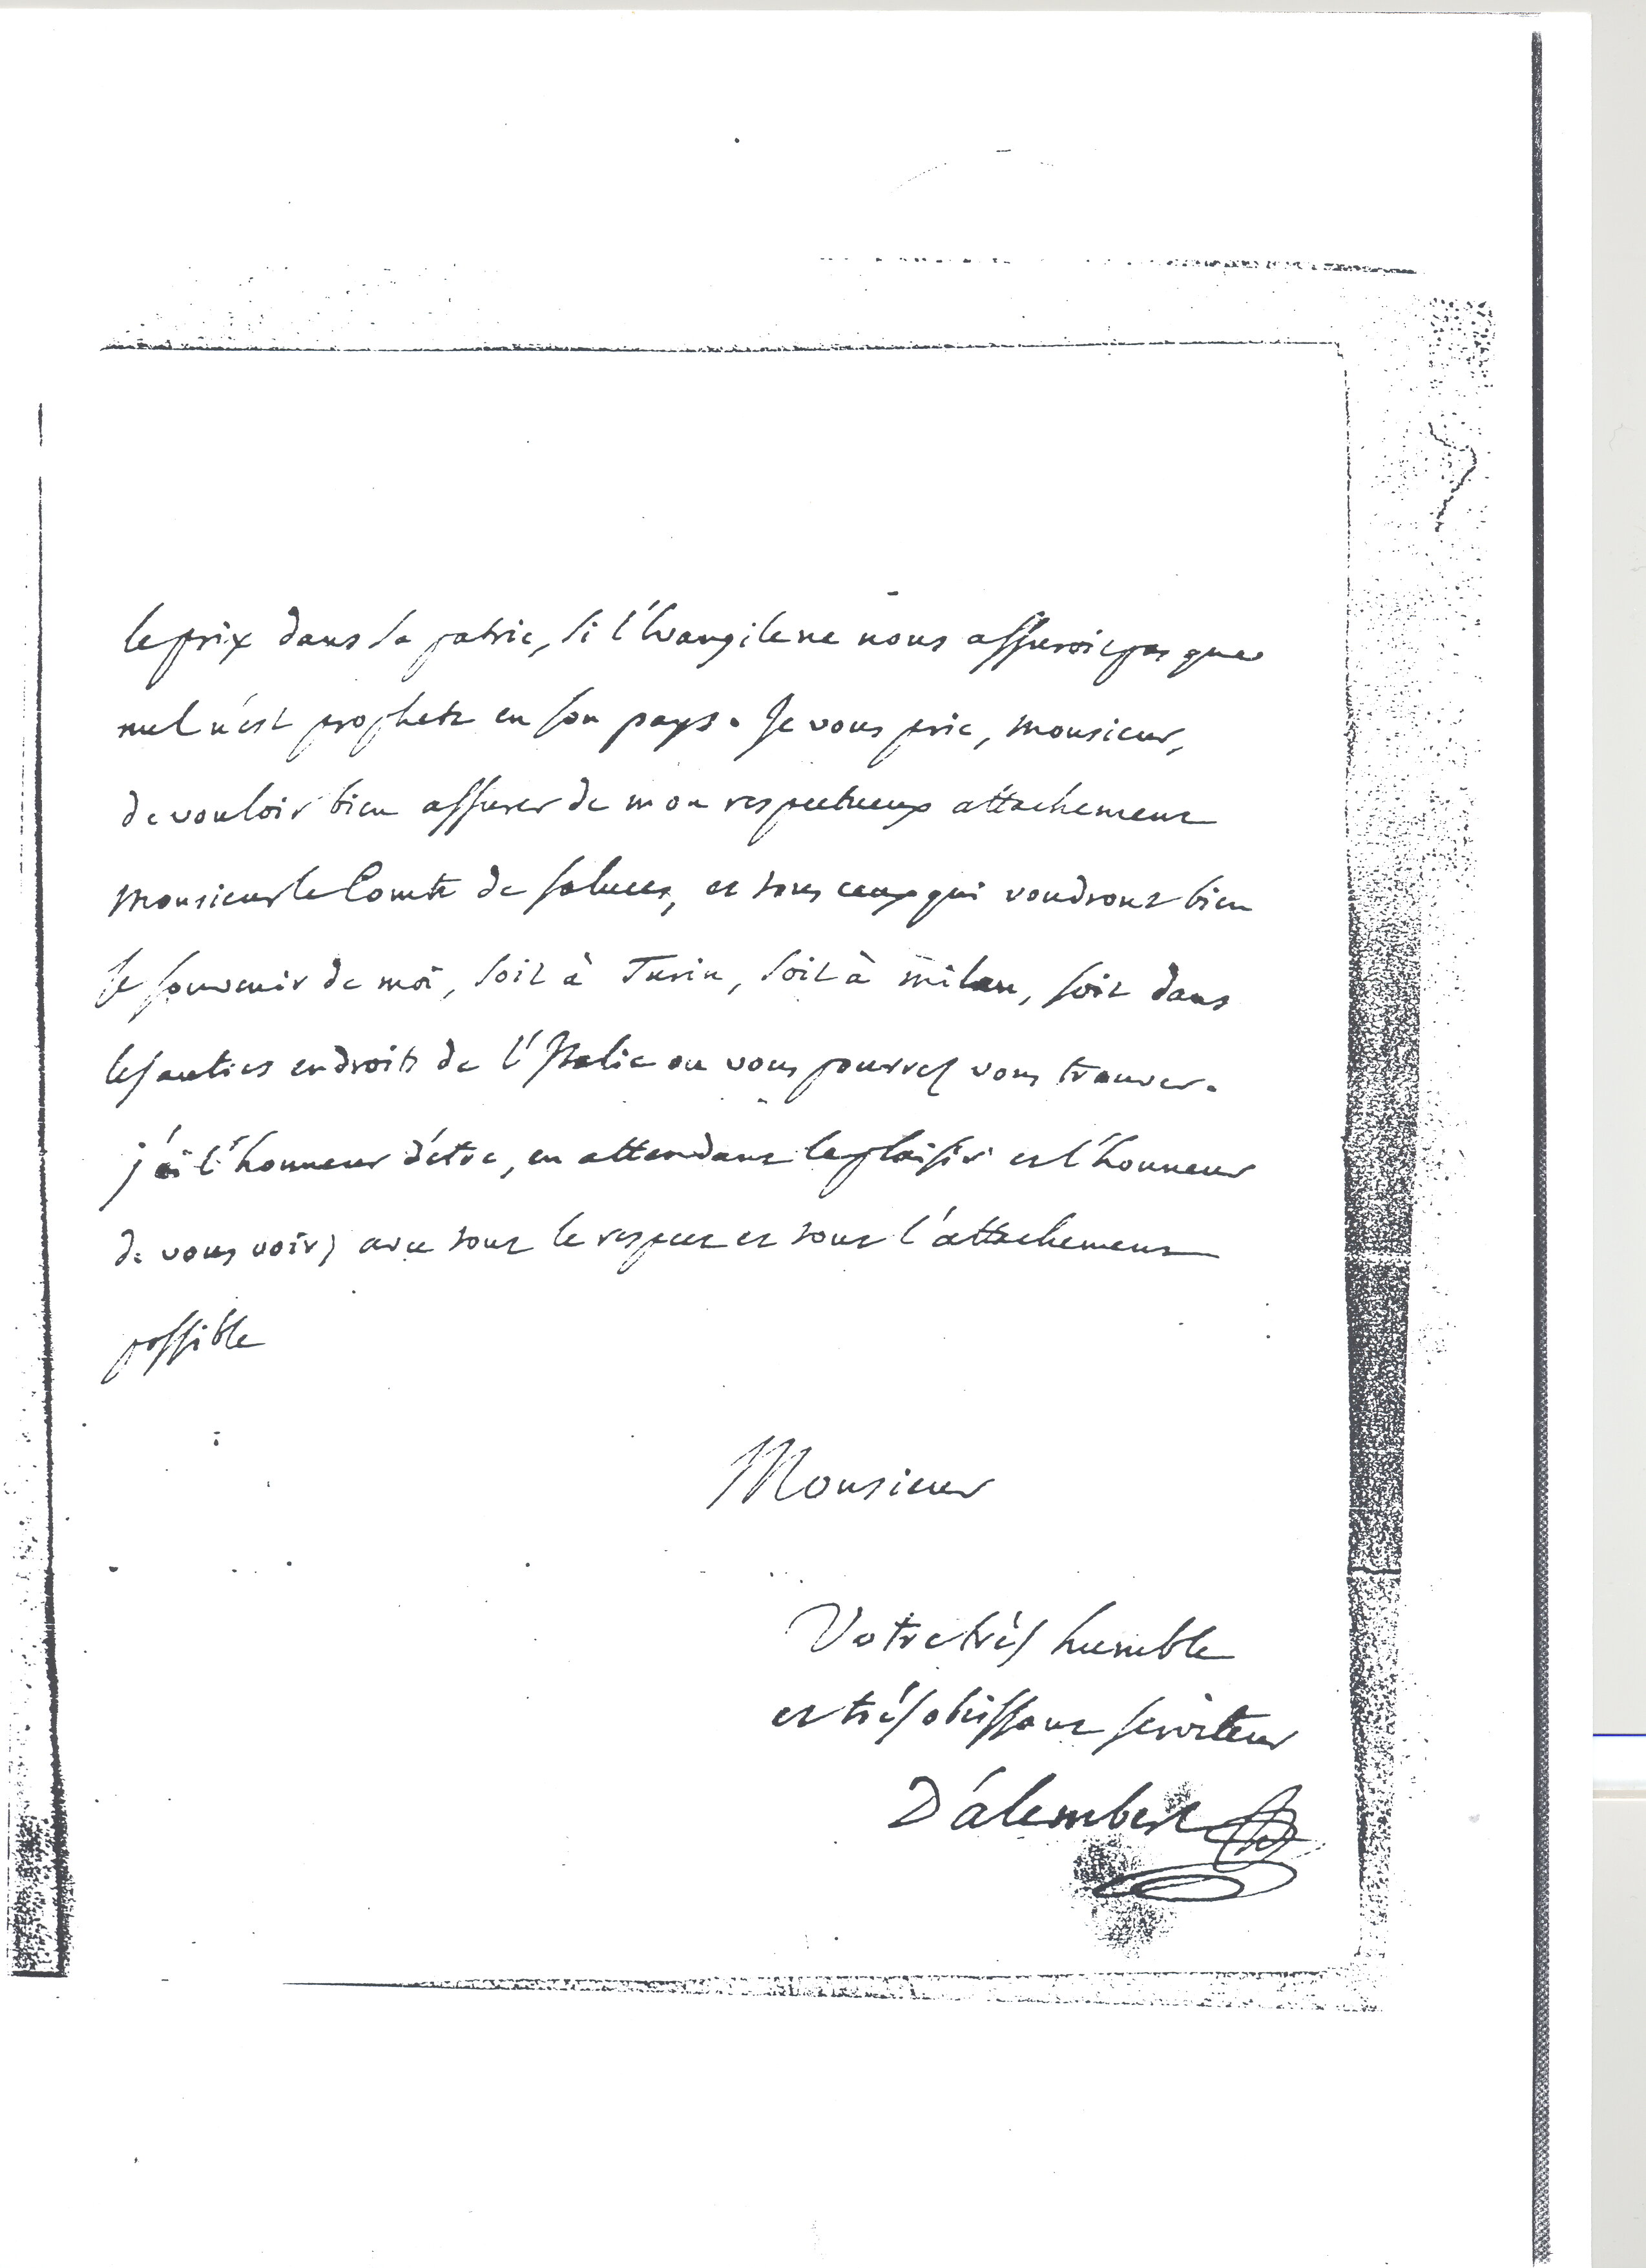 le prix dans sa patrie, si l'Evangile ne nous assuroit pas que
nul n'est prophete en son pays. Je vous prie, monsieur,
de vouloir bien assurer de mon respectueux attachement
monsieur le Comte de Saluces, et tous ceux qui voudront bien
se souvenir de moi, soit à Turin, soit à milan, soit dans
les autres endroits de l'Italie ou vous pourrez vous trouver.
j'ai l'honneur d'etre, en attendant le plaisir et l'honneur
de vous voir, avec tout le respect et tout l'attachement
possible
Monsieur
Votre très humble
et très obéissant serviteur
D'alembert